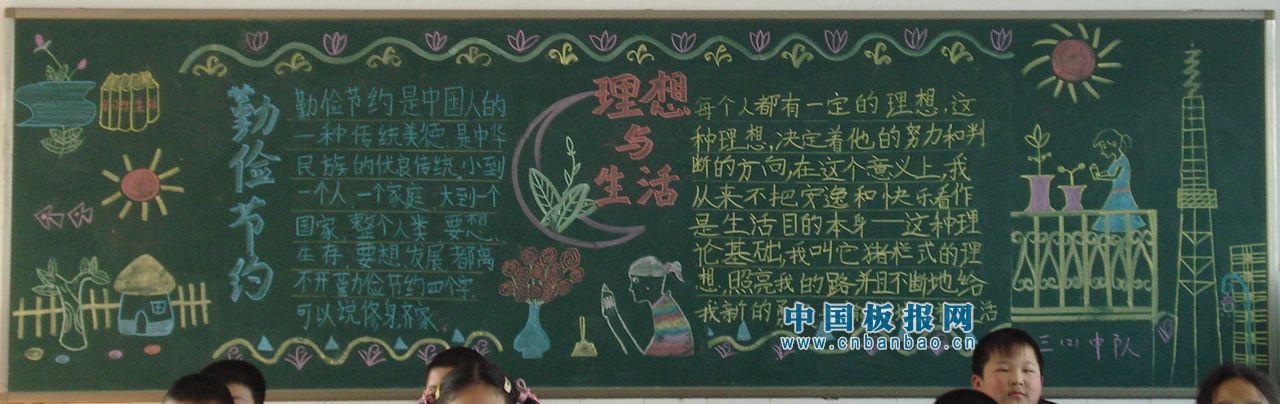 勤俭节约
勤俭节约是中国人的
一种传统美德,是中华
民族的优良传统,小到
一个人,一个家庭,大到一个
国家,整个人类,要想
生存,要想发展都离
不开勤俭节约四个字,
可以说修身齐家
理想
与
生活
每个人都有一定的理想,这
种理想,决定着他的努力和判
断的方向,在这个意义上,我
从来不把安逸和快乐看作
是生活目的本身——这种理
论基础,我叫它猪栏式的理
想,照亮我的路并且不断地给
我新的
活
三(2)中队
中国板报网
www.cnbanbao.cn